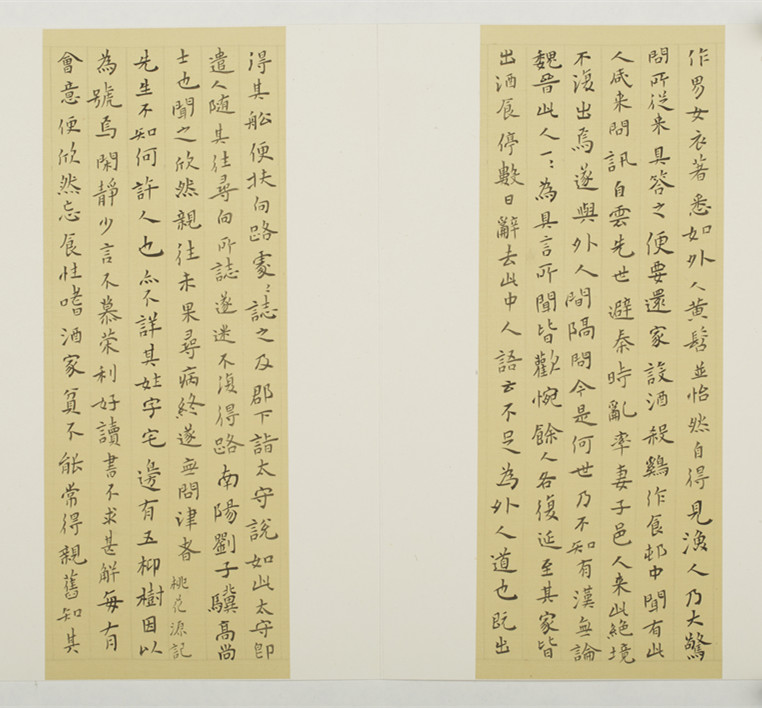 作男女衣著悉如外人黃髫並怡然自得見漁人乃大驚
問所從来具答之便要還家設酒殺鷄作食邨中聞有此
人咸来問訊自雲先世避秦時亂率妻子邑人来此絶境
不復出焉遂與外人間隔問今是何世乃不知有漢無論
魏晉此人一:為具言所聞皆歡惋餘人各復延至其家皆
出酒食停數日辭去此中人語云不足為外人道也既出
得其船便扶向路處:誌之及郡下詣太守說如此太守即
遣人隨其往尋向所誌遂迷不復得路南陽劉子驥高尚
士也聞之欣然親往未果尋病終遂無問津者 桃花源記
先生不知何許人也亦不詳其姓字宅邊有五柳樹因以
為號焉閑靜少言不慕榮利好讀書不求甚解每有
會意便欣然忘食性嗜酒家貧不能常得親舊知其